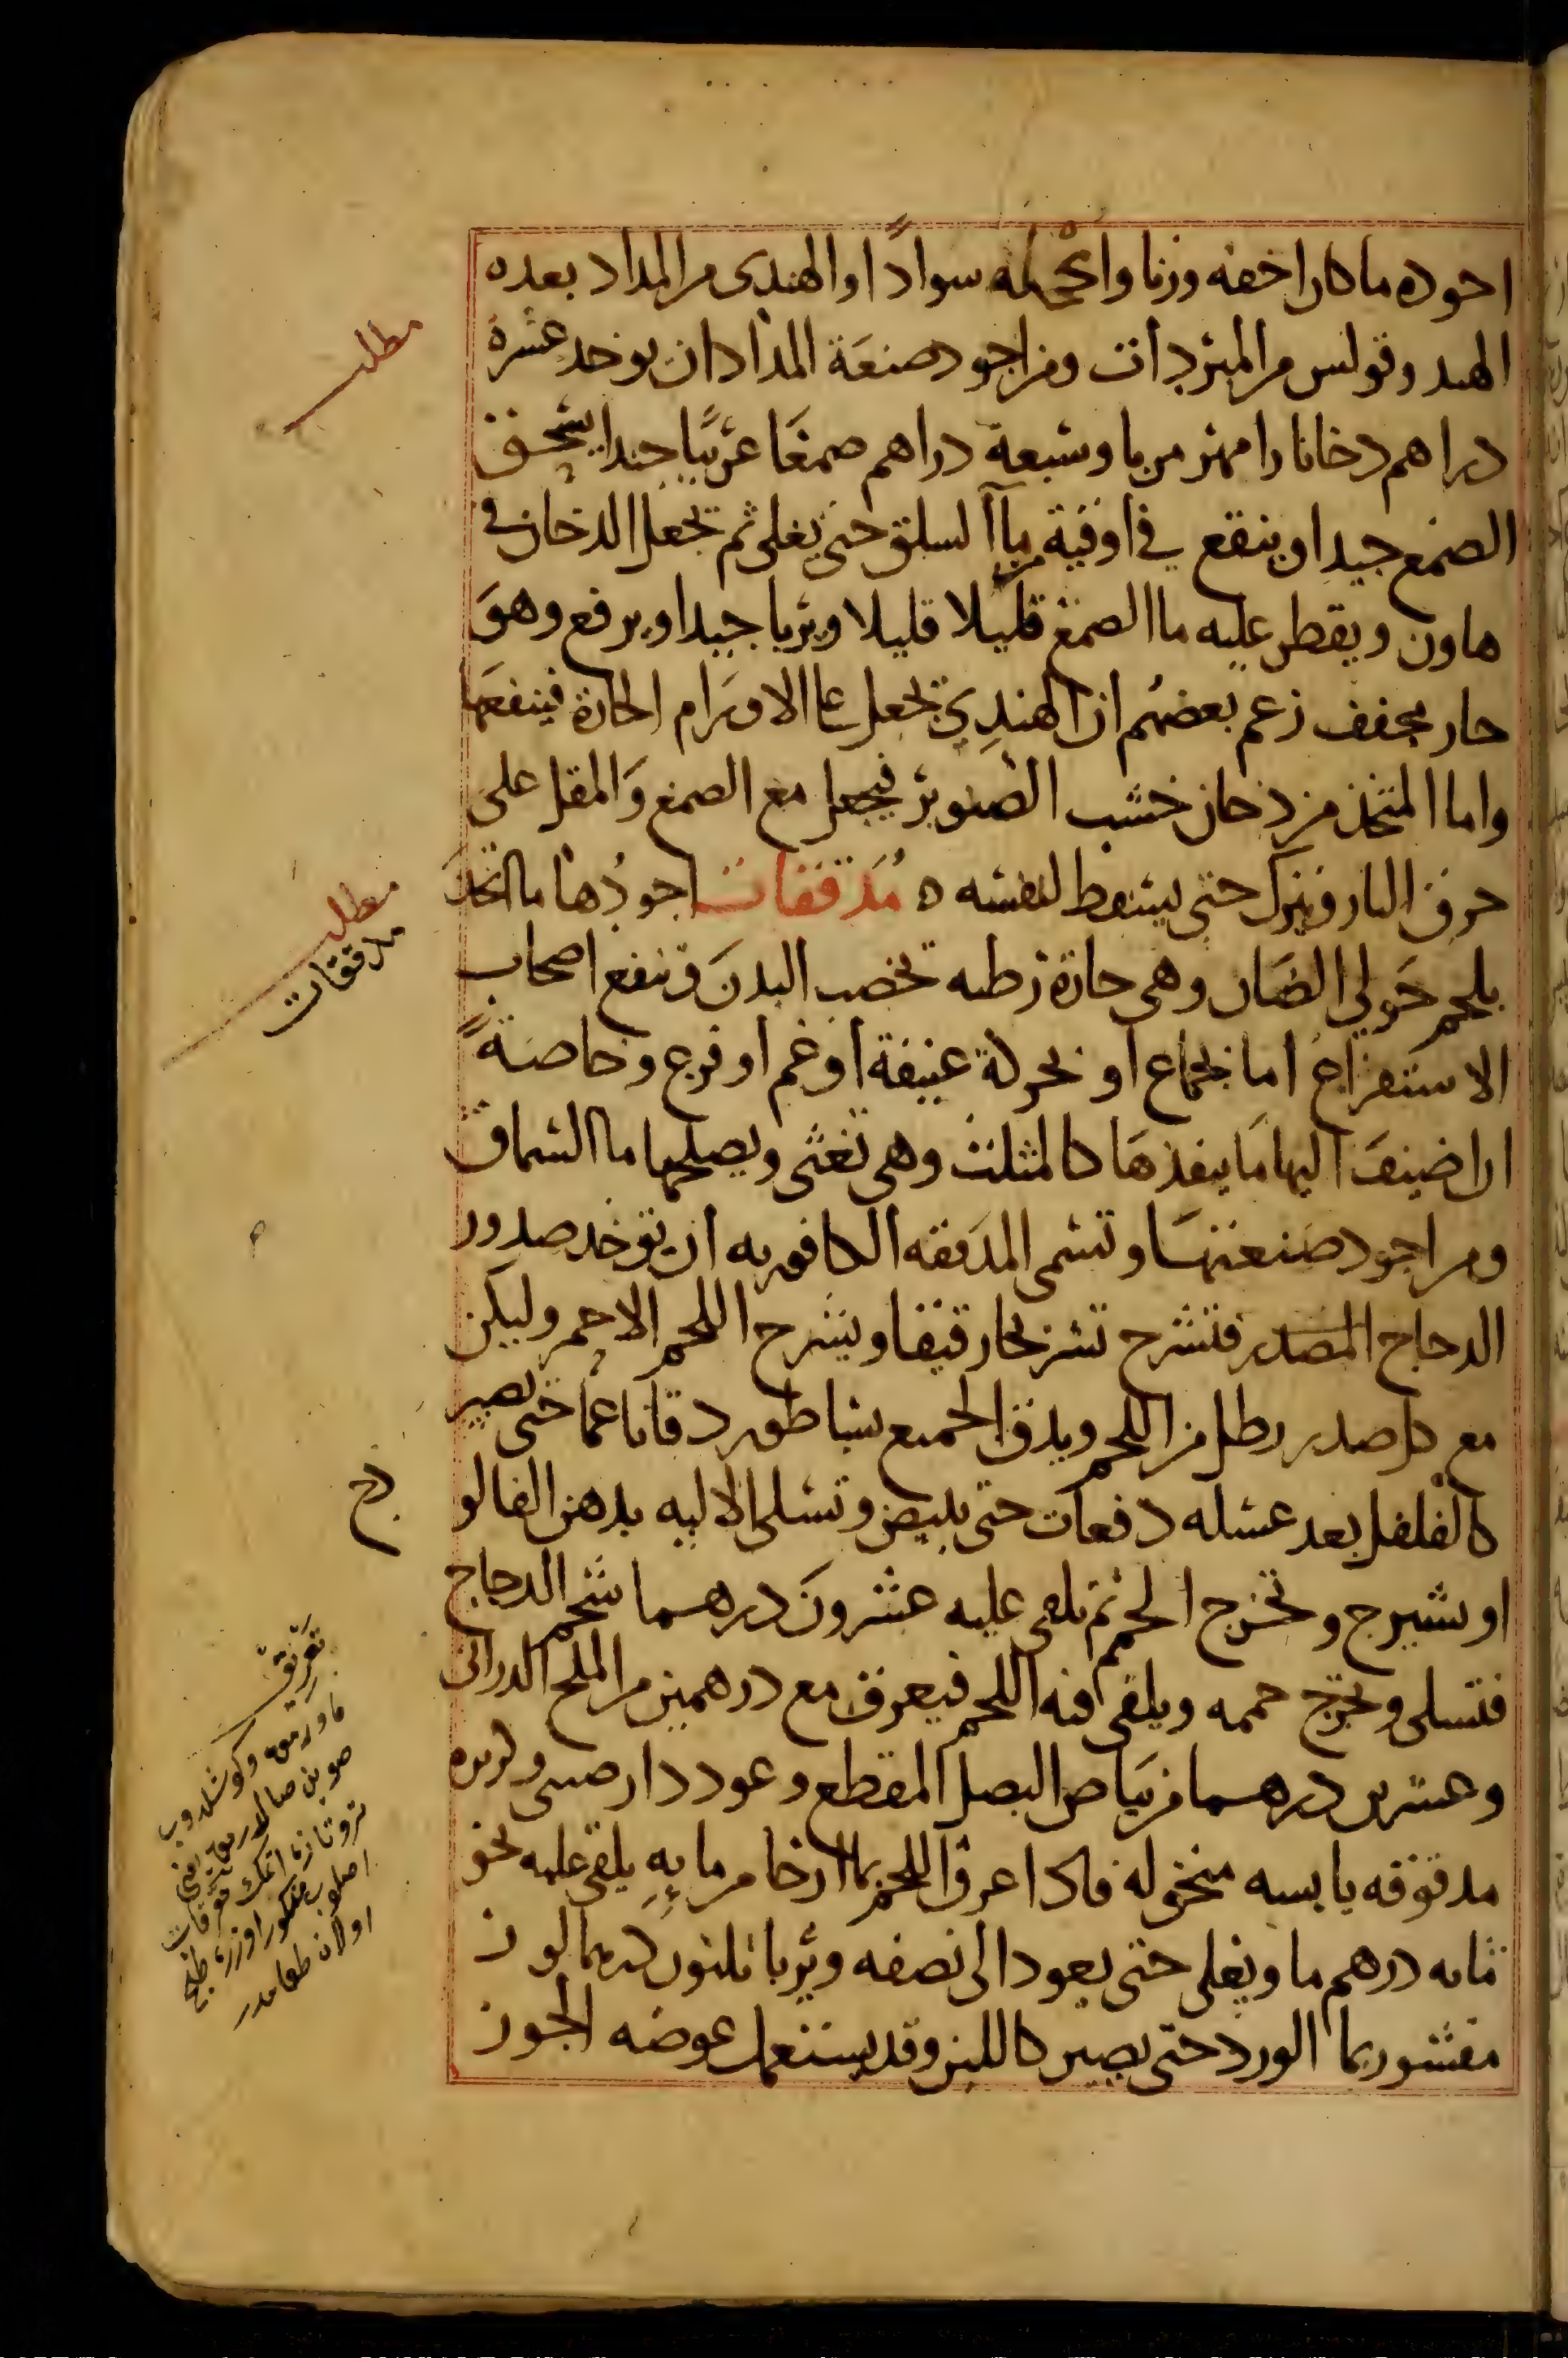 اجوده ما كان اخفه وزنا واكحله سوادًا والهندى من المداد بعده
الهند وقولس من المبردات ومن اجود صنعَة المدادان يوخد عشرة
دراهم دخانا رامهرمزيا وسبعة دراهم صمغًا عربيًا جيدا يسحق
الصمغ جيدا وينقع في اوقية من ماآ السلق حتى يغلى ثم تجعل الدخان في
هاون ويقطر عليه ما الصمغ قليلا قليلا ويربا جيدا ويرفع وهوَ
حار مجفف زعم بعضهُم ان الهندِي يجعل على الاورَام الحارة فينفعَها
واما المتخذ من دخان خشب الصنوبر فيجعل مع الصمغ وَالمقل على
حرف النار ويترك حتى يسقط لنفسه ه مُدَققات اجودُها ما اتخذَ
بلحم حَولي الضَان وهى حارة رطبه تخصب البدنَ وتنفع اصحاب
الاستفراغ اما بجماع او بحركة عنيفة او غم او فزع وخاصَةً
ان اضيفَ اليها مَا ينفذهَا كالمثلث وهى تغثى ويصلحها ما السماق
ومن اجود صنعتهَا وتسمى المدَققه الكافوريه ان توخد صدور
الدجاج المصدر فتشرح تشريحا رقيقا ويشرح اللحم الاحمر وليكن
مع كل صدر رطل من اللحم ويدق الجميع بساطور دقا ناعمًا حتى يصير
كالفلفل بعد غسله دفعات حتى يبيض وتسلى الاليه بدهن الفالو
او بشيرج وتخرج الحمم ثم يلقى عليه عشرونَ درهما شحم الدجاج
فتسلى وتخرج حممه ويلقى فيه اللحم فيعرق مع درهمين من الملح الدرانى
وعشرين درهما من بيَاض البصل المقطع وعود دارصينى وكزبره
مدقوقه يابسه منخوله فاذا عرق اللحم بما ارخا من مايهِ يلقى عليه نحو
ثمانه درهم ما ويغلى حتى يعود الى نصفه ويربا ثلثون درهما لوز
مقشور بما الورد حتى يصير كاللبن وقد يستعمل عوضه الجوز
مطلب
مطلب
مدققات
تعريق